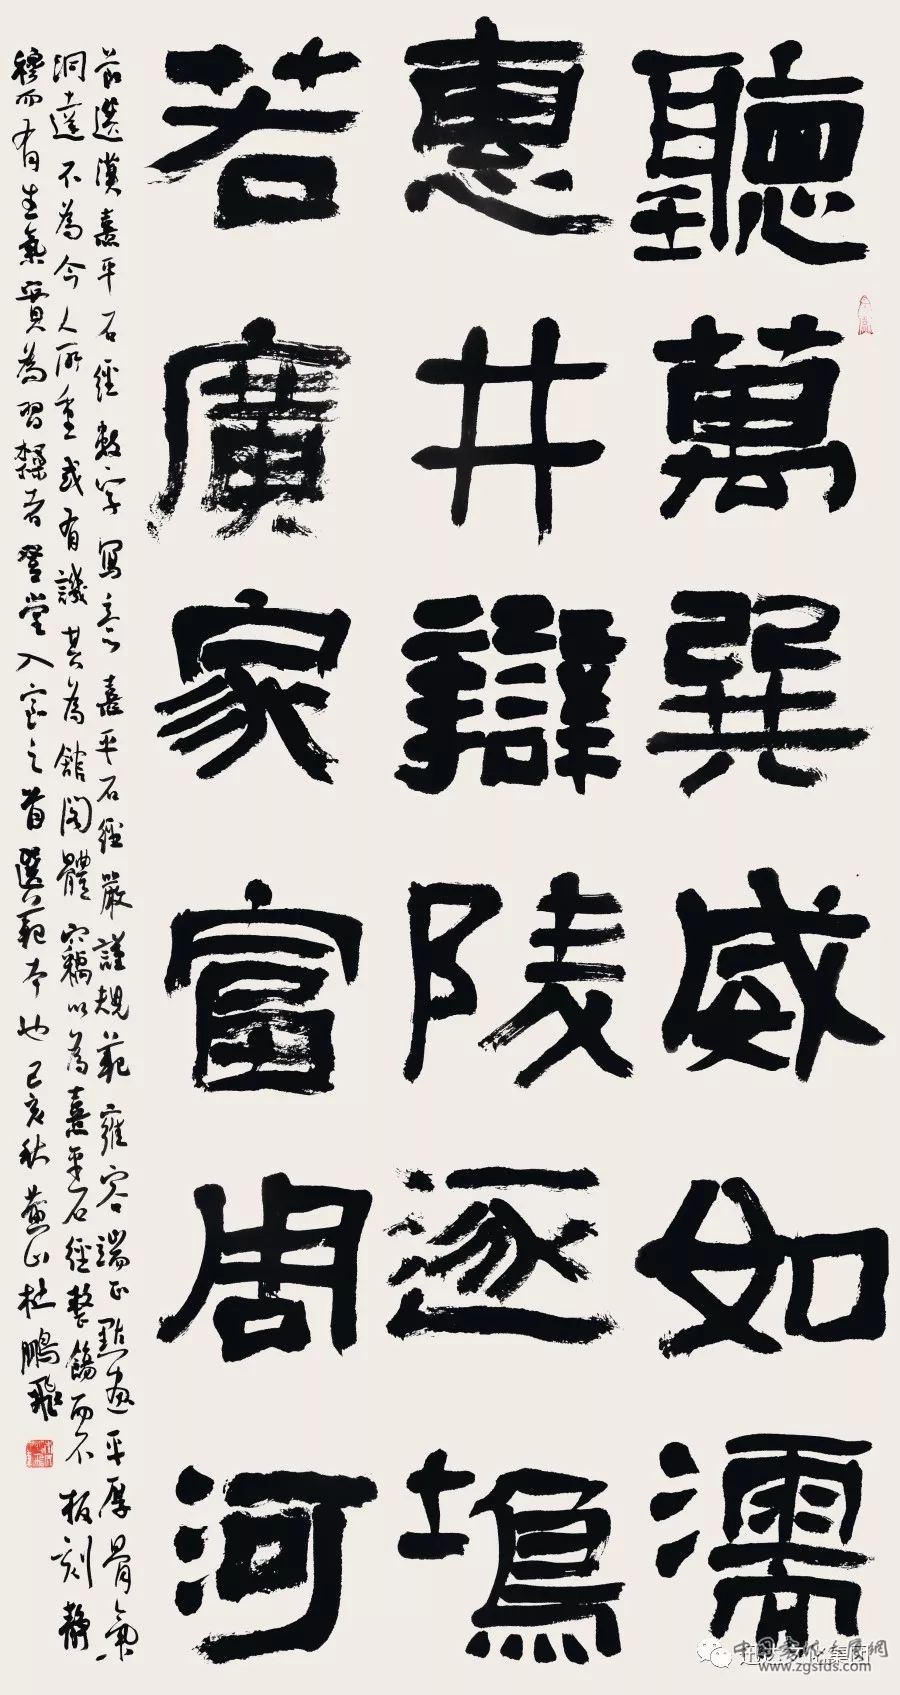 聽萬巽威如濡
惠井辯陵逐塢
若廣家富周河
節選漢熹平石經數字寫意熹平石經嚴謹規範雍容端正點畫平厚骨氣
洞達不為今人所重或有譏其為館閣體竊以為熹平石經整飭而不板刻靜
穆而有生氣實為習隸者登堂入室之首選範本也己亥秋黃山杜鵬飛
www.zgsfds.com